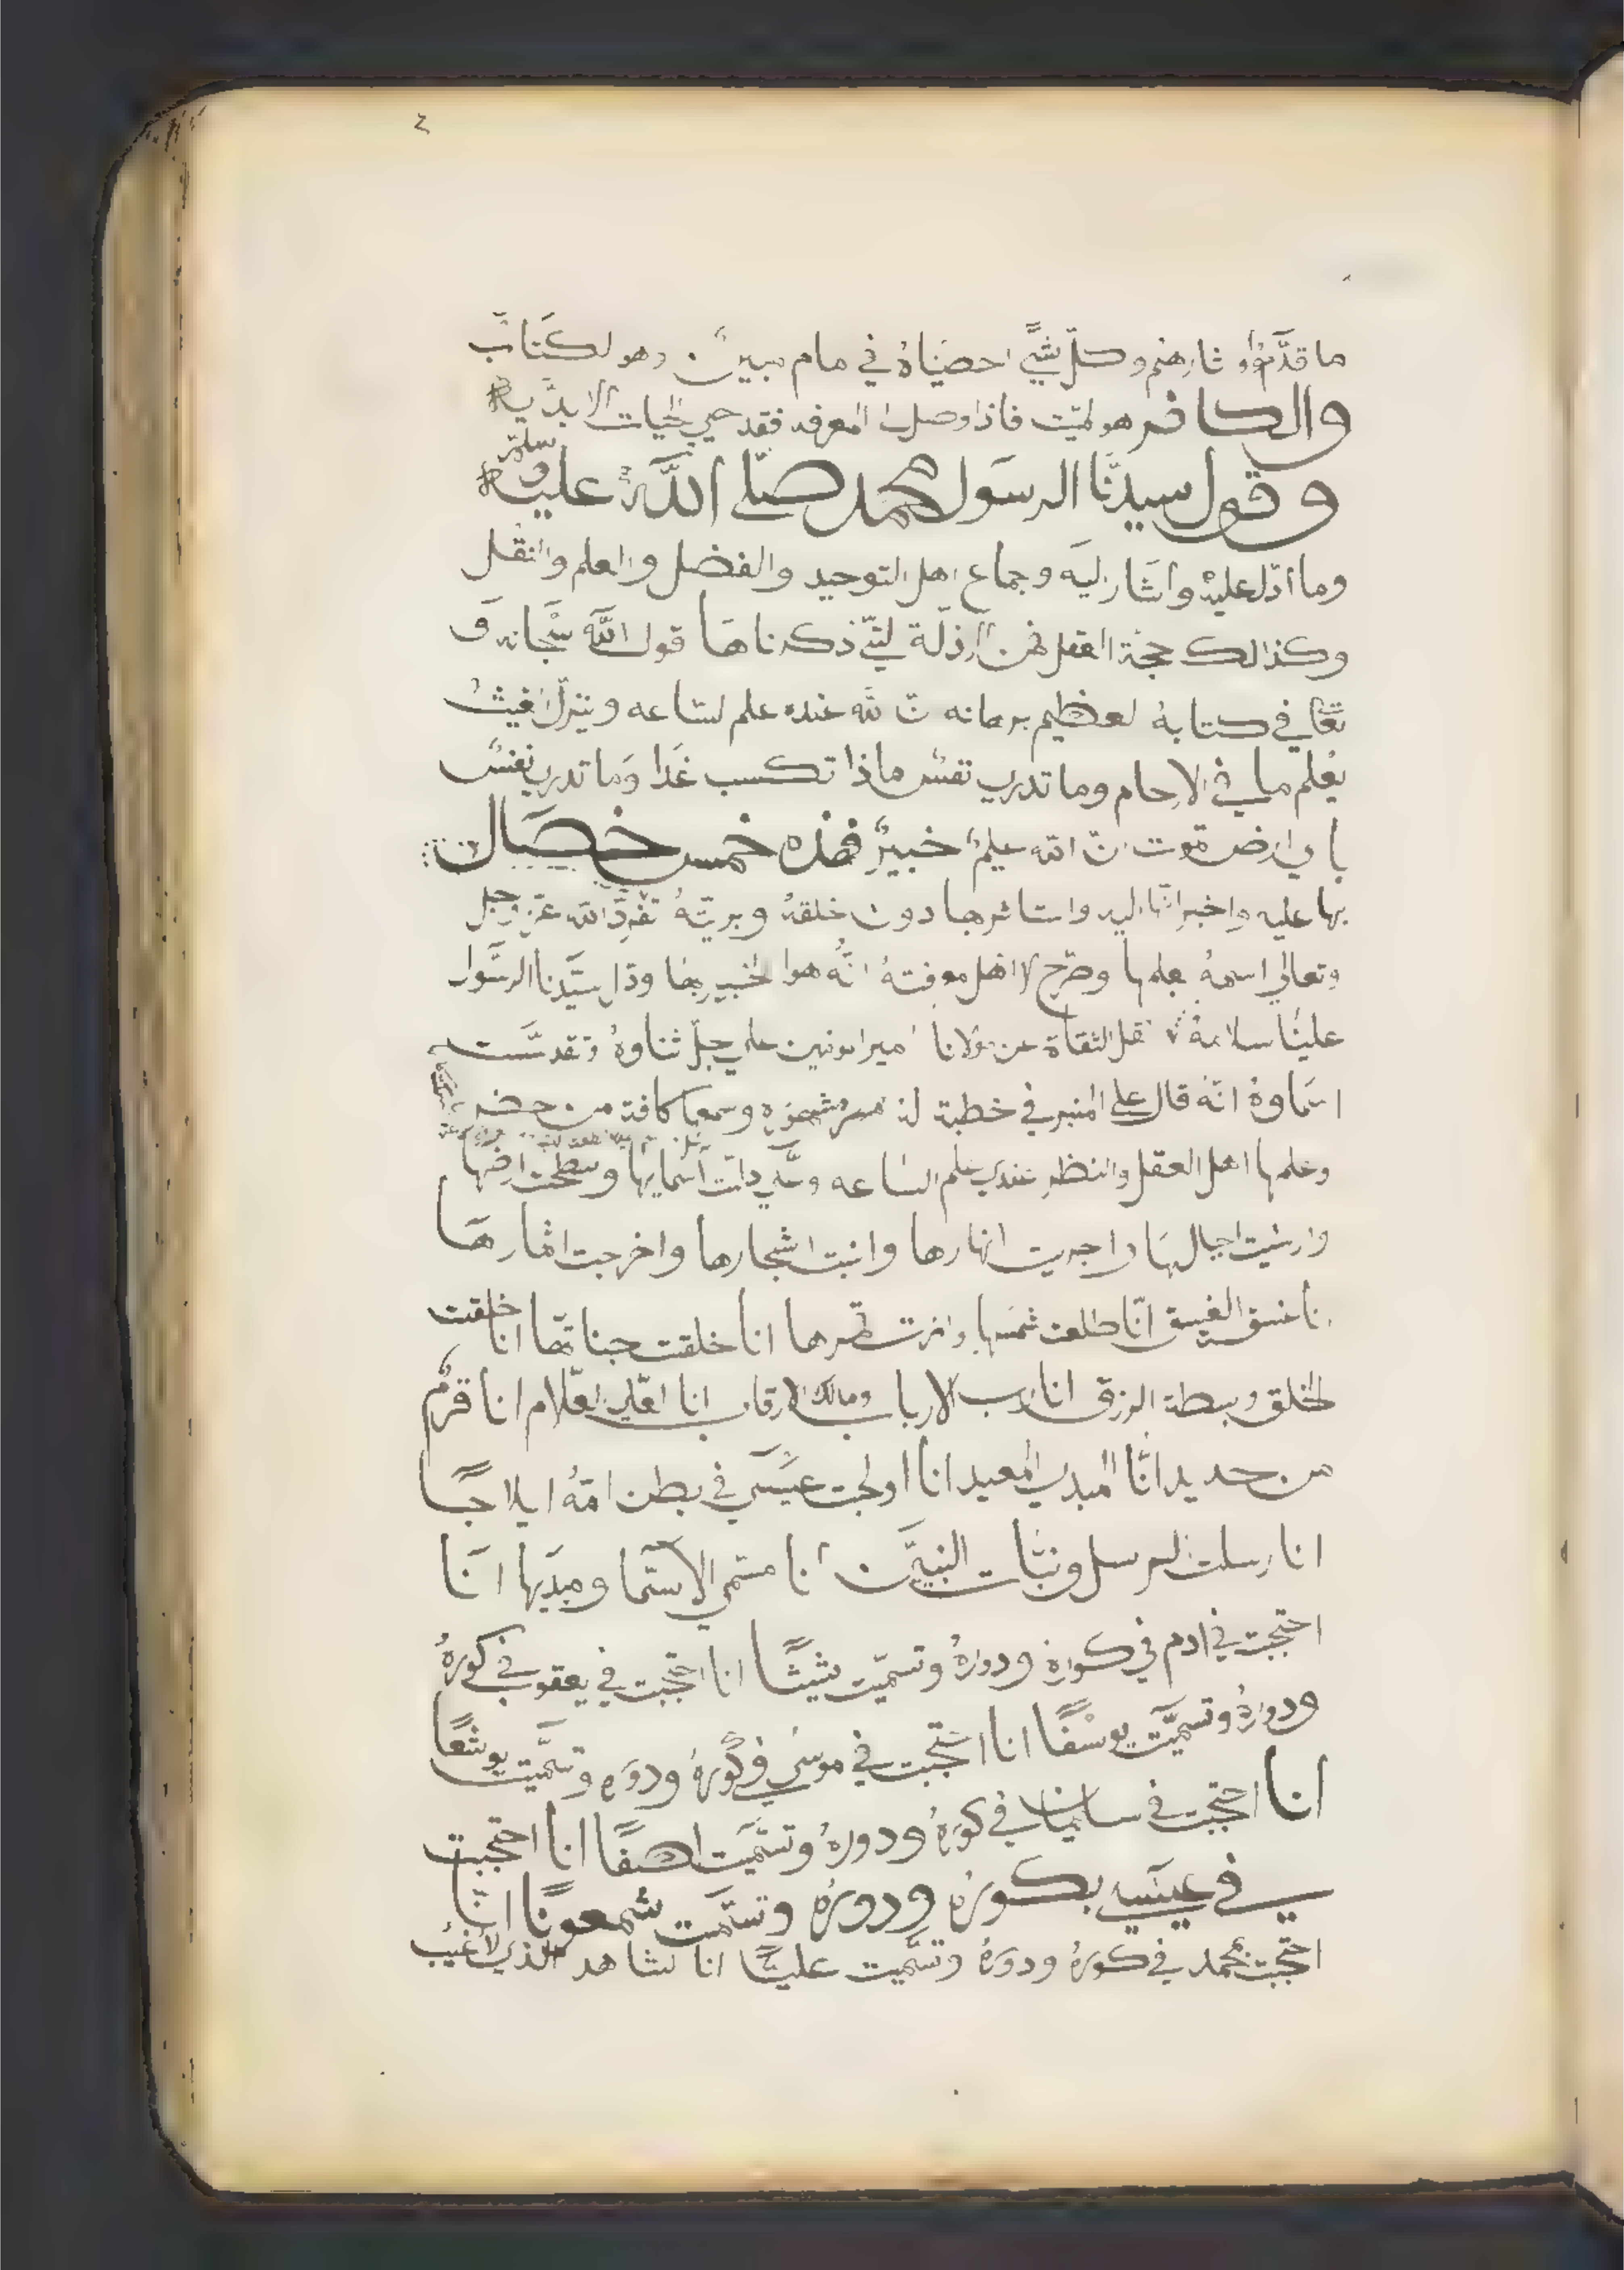 ٤
ما قدّموا وثارهم وكلّ شيءً احصيناهُ في مام مبينٌ وهو لكتَابُ
والكافر هو لميّت فاذا وصل المعرفه فقد حيي لحيات الابديه
وقول سيدنا الرسَول محمد صلّى اللَّه عليه وسلم
وما ادّل عليهْ واشَار ليَه وجماع اهل التوحيد والفضل والعلم والنقل
وكذالك حجّة العقل فمن الرذلَة لتيّ ذكرناهَا قول اللَّه سبحانه وَ
تعَّا في كتابهُ لعظيم برهانه نّ لله عنده علم لساعه وينزلُ الغيثُ
يعْلم ما في الارحام وما تدري نفسٌ ماذا تكسب غدَا ومَا تدري نفسٌ
باي ارض تموت نّ اللّه عليمٌ خبيرٌ فهذه خمس خصال
بها عليه واخبر انّها اليه واستاثر بها دون خلقهُ وبريّتهُ تفردَّ اللّه عزّ وجل
وتعالى اسمهُ بعلمها وصّرح لاهل معرفتهُ انَّه هوا لخبير بهَا وقال سيّدنا الرسَّول
علينَا سلامهُ نقل الثقاة عن مولانا اميرا مومنين علي جلّ ثناوهُ وتقدسَّت
اسَماوهُ انّه قال على المنبر في خطبة لهُ مشهوره وسمعها كافة من حضر
وعلمها اهل العقل والنظر عندي علم السَاعه وعليَّ دلَّت اسمايهَا وسطحت ارضها
وارسيت اجبالهَا واجريت انهارها وانبت اشجارها واخرجت اثمارهَا
نا غسق الغسيق انّا طلعت شمسَها وانرت قمرها انا خلقت جناتّها انا خلقت
لخلق وبسطة الرزق انا رب الارباب ومالك الارقاب انا العلي العلّام انا قرمٌ
من حديد انّا المبدي المعيد انا اولجت عيسَى في بطن امّهُ ايلاجًا
انا رسلت الرسل ونبّات النبيّين انا مسمّي الاسَّما ومبدَيها انَا
احتجبت في ادم في كوارهِ ودوارهُ وتسمّيت بشيثًا انا احتجبت في يعقوب في كورهُ
ودورهُ وتسميَّت يوسْفًا انا احتجبت في موسَى في كورهُ ودورَه وتسمَّيت يوشعًا
انا احتجبت في سليمان في كورهُ ودورهُ وتسّمَيت اصفًا انا احتجبت
في عيسَى بكورهُ ودورهُ وتسمَّيت شمعونًا انّا
احتجبت بمحمد في كورهُ ودورهُ وتسَّميت عليًّا انا لشاهد الذي لا غيبُ